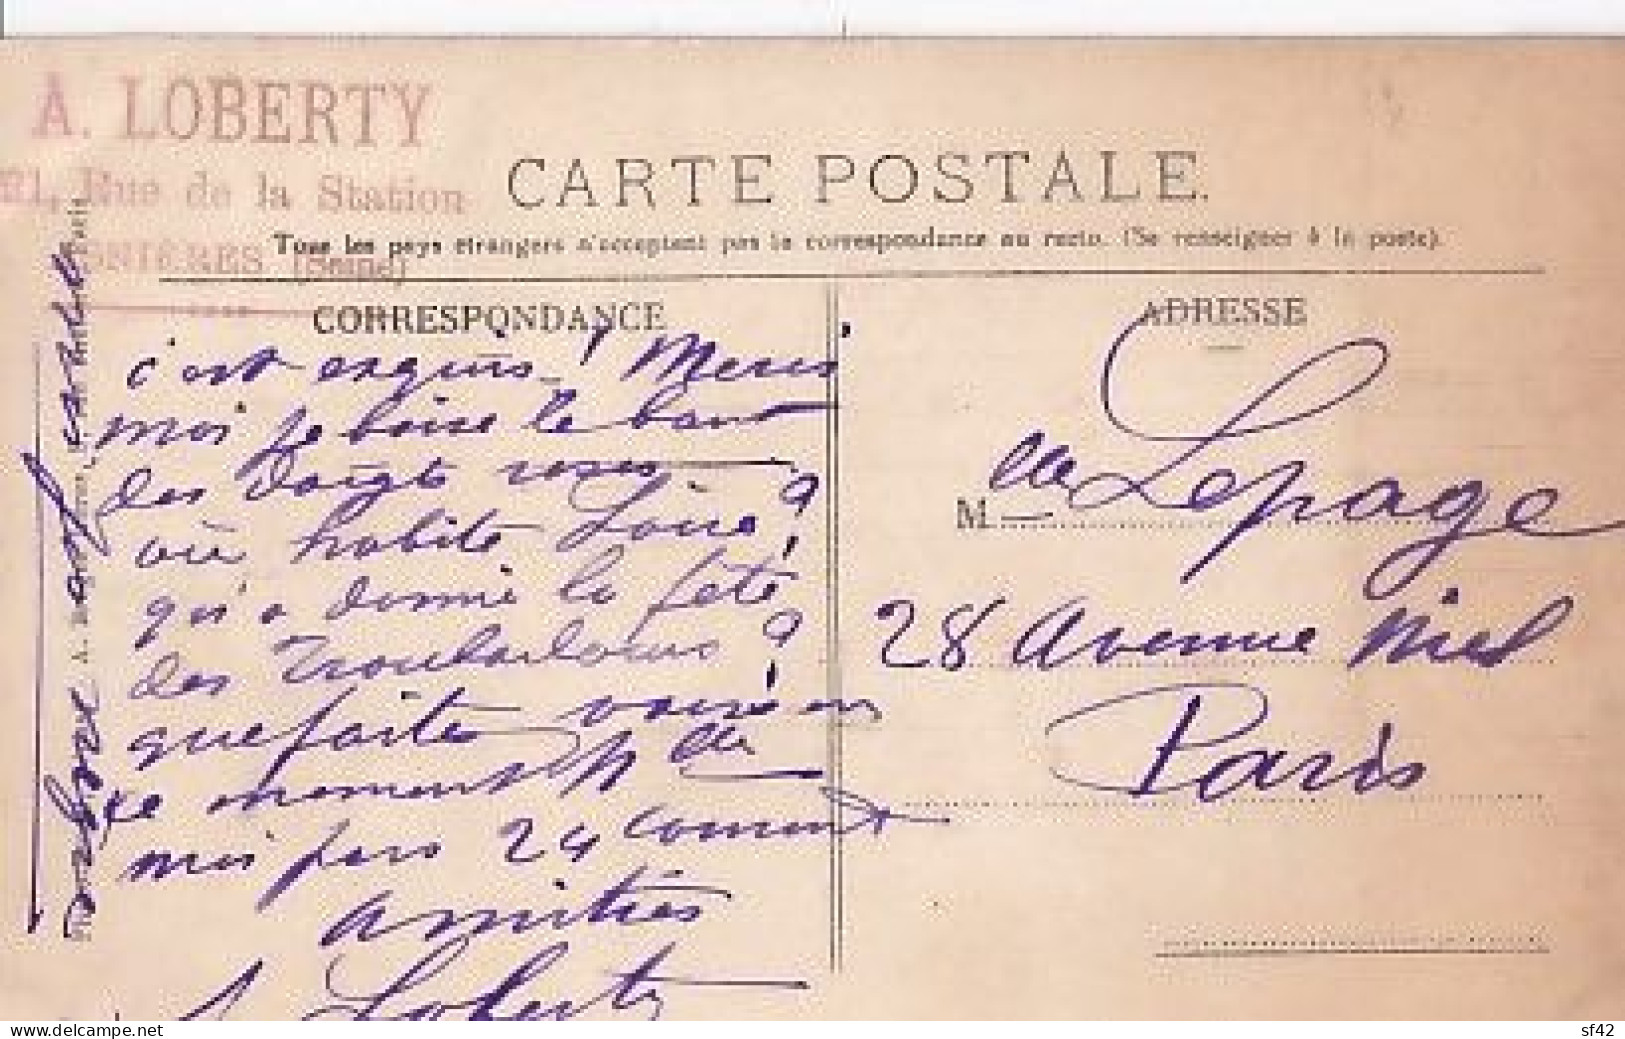 A. LOBERTY
21, Rue de la Station
NIÈRES (Seine)
CARTE POSTALE.
Tous les pays étrangers n'acceptent pas la correspondance au recto. (Se renseigner à la poste).
CORRESPONDANCE
ADRESSE
c'est exquis! Merci
moi je baise le bout
des doigts roses
où habite Loïse?
qui a donné la fête
des
que faites vous en
ce moment
moi pars 24 courant
amitiés
A. Loberty
Mlle Lepage
28 Avenue Niel
Paris
carte
Paris
delcampe.net
sf42